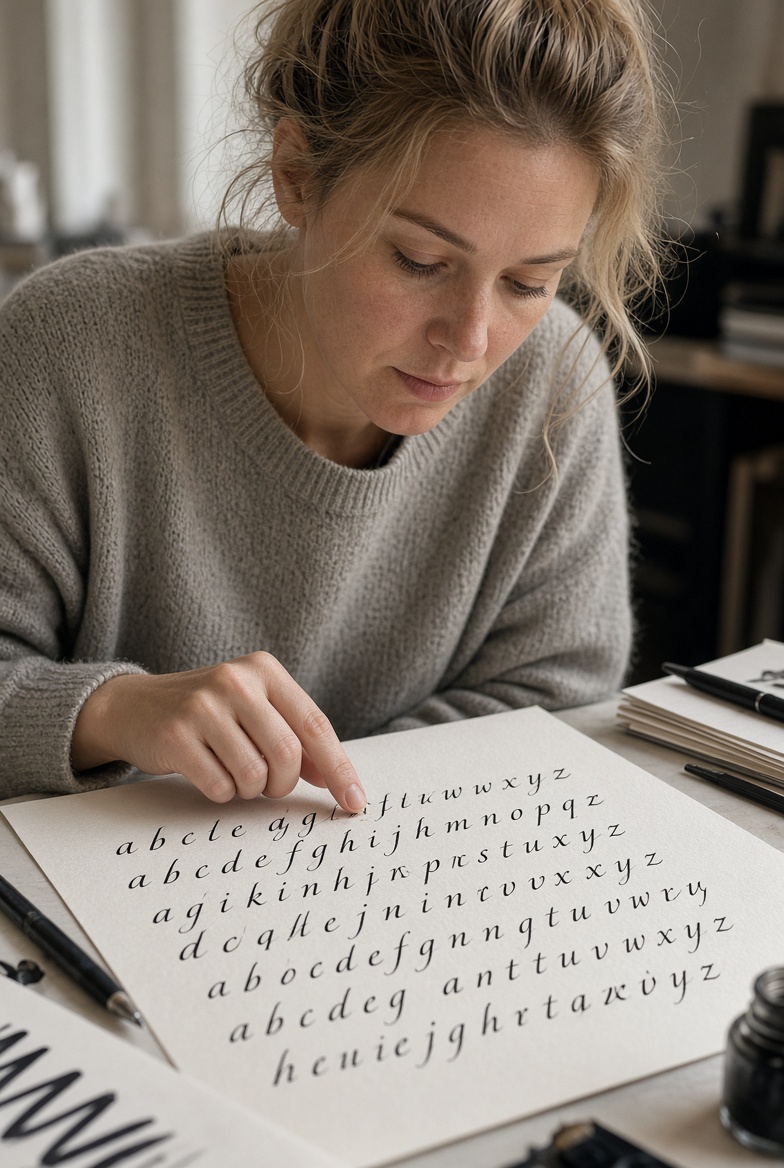 a b c l e g g f t u w w x y z
a b c d e f g h i j h m n o p q z
a g i k i n h j κ p π s t u x y z
d c q H e j n i n τ v v x x y z
a b o c d e f g n n q t u v w r y
a b c d e g a n t t u v w x y z
h e u i e j g h r t a κ v y z